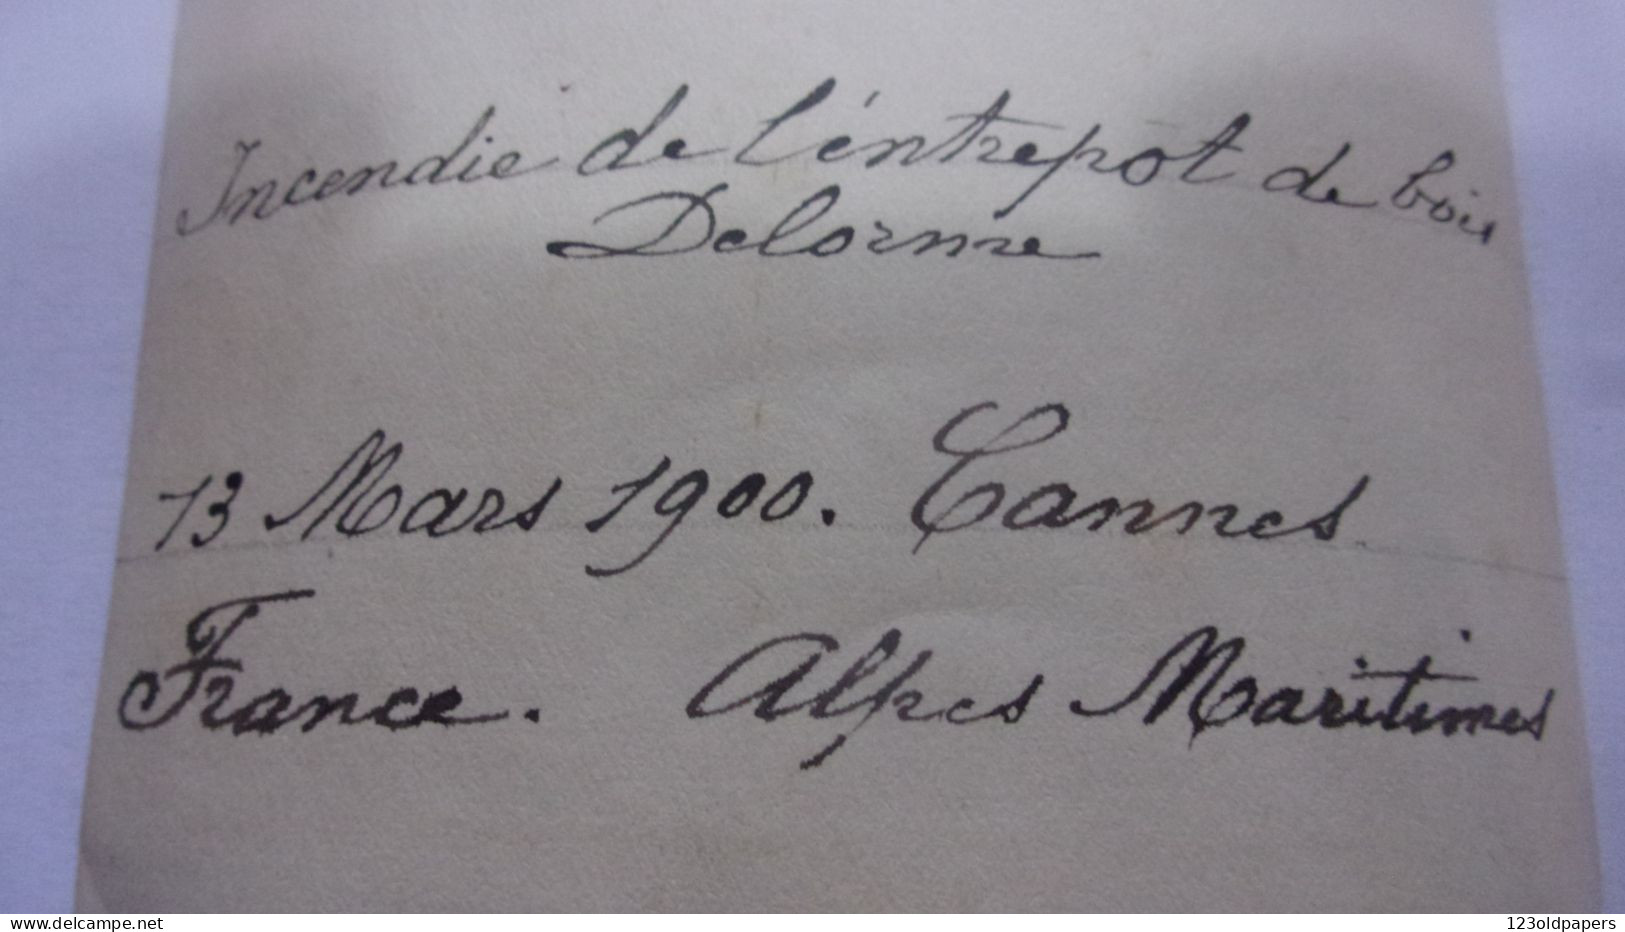 Incendie de l'éntrepot de bois
Delorme
13 Mars 1900. Cannes
France. Alpes Maritimes
www.delcampe.net
123oldpapers